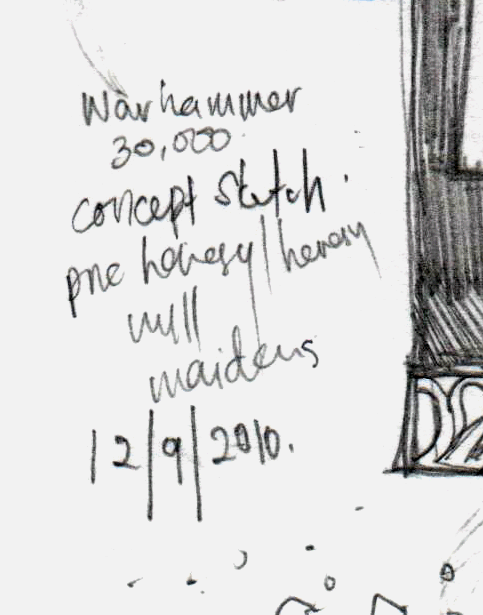 Warhammer
30,000
concept sketch.
pre heresy/heresy
null
maidens
12/9/2010.